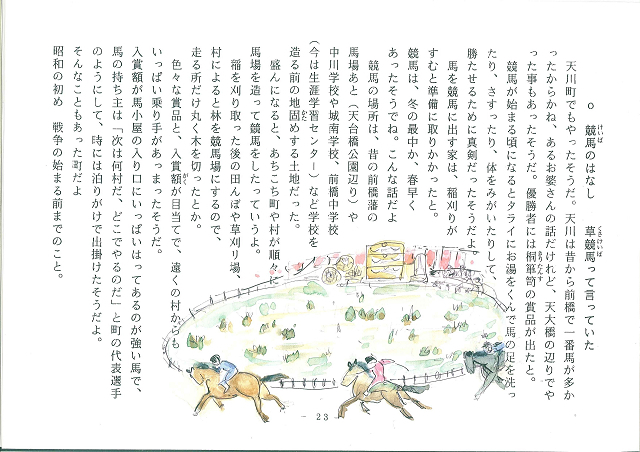 o 競馬のはなし 草競馬って言っていた
天川町でもやったそうだ。天川は昔から前橋で一番馬が多か
ったからかね、あるお婆さんの話だけれど、天大橋の辺りでや
った事もあったそうだ。優勝者には桐箪笥の賞品が出たと。
競馬が始まる頃になるとタライにお湯をくんで馬の足を洗っ
たり、さすったり、体をみがいたりして、
勝たせるために真剣だったそうだよ。
馬を競馬に出す家は、稲刈りが
すむと準備に取りかかったと。
競馬は、冬の最中か、春早く
あったそうでね。こんな話だよ
競馬の場所は、昔の前橋藩の
馬場あと(天台橋公園辺り)や
中川学校や城南学校、前橋中学校
(今は生涯学習センター)など学校を
造る前の地固めする土地だった。
盛んになると、あちこち町や村が順々に
馬場を造って競馬をしたっていうよ。
稲を刈り取った後の田んぼや草刈り場、
村によると林を競馬場にするので、
走る所だけ丸く木を切ったとか。
色々な賞品と、入賞額が目当てで、遠くの村からも
いっぱい乗り手があつまったそうだ。
入賞額が馬小屋の入り口にいっぱいはってあるのが強い馬で、
馬の持ち主は「次は何村だ、どこでやるのだ」と町の代表選手
のようにして、時には泊りがけで出掛けたそうだよ。
そんなこともあった町だよ
昭和の初め 戦争の始まる前までのこと。
- 23 -